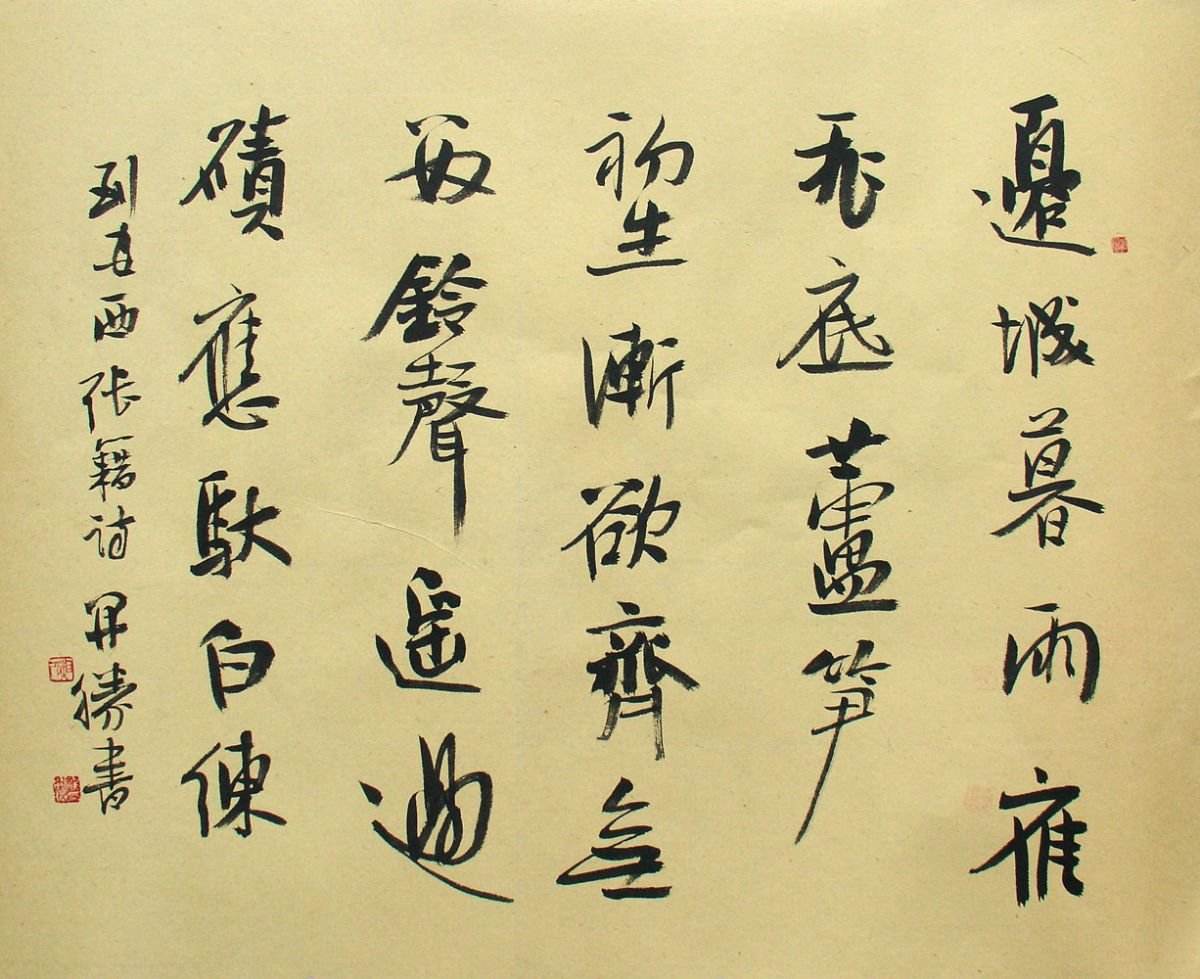 邊城暮雨雁
飛底蘆笋
初生漸欲齊無
數鈴聲遥過
磧應馱白練
到安西張籍詩 開勝書